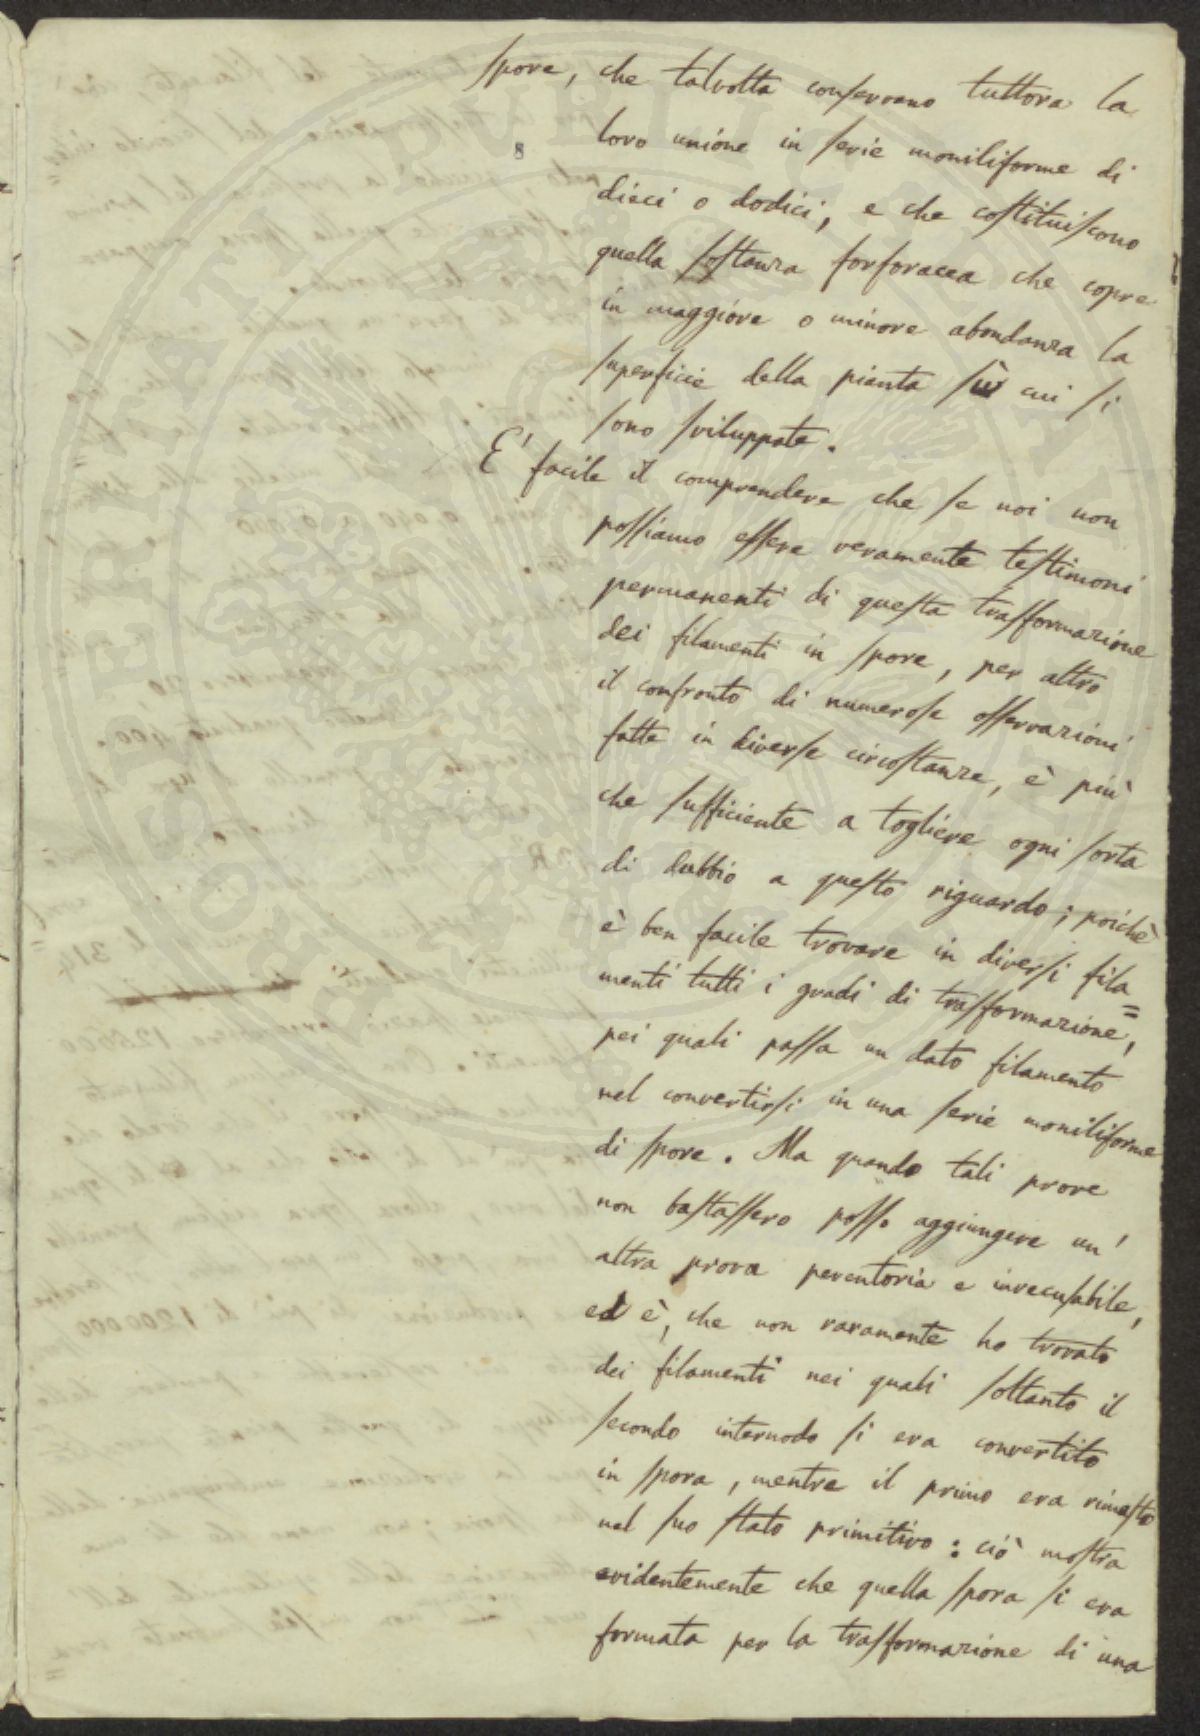 spore, che talvolta conservano tuttora la
loro unione in serie moniliforme di
8
dieci o dodici, e che costituiscono
quella sostanza forforacea che copre
in maggiore o minore abondanza la
superficie della pianta sù cui si
sono sviluppate.
E' facile il comprendere che se noi non
possiamo essere veramente testimoni
permanenti di questa trasformazione
dei filamenti in spore, per altro
il confronto di numerose osservazioni
fatte in diverse circostanze, è più
che sufficiente a togliere ogni sorta
di dubbio a questo riguardo; poichè
è ben facile trovare in diversi fila=
menti tutti i gradi di trasformazione,
pei quali passa un dato filamento
nel convertirsi in una serie moniliforme
di spore. Ma quando tali prove
non bastassero posso aggiungere un'
altra prova perentoria e irrecusabile,
ed è, che non raramente ho trovato
dei filamenti nei quali soltanto il
secondo internodo si era convertito
in spora, mentre il primo era rimasto
nel suo stato primitivo: ciò mostra
evidentemente che quella spora si era
formata per la trasformazione di una